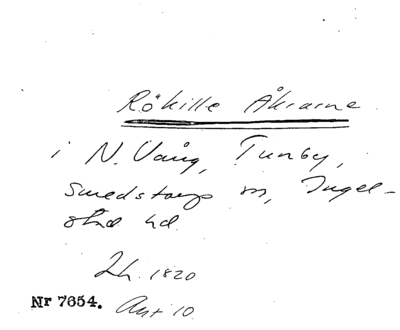 Rökille Åkrarne
i N. Vång, Tunby,
Smedstorps sn, Ingel-
stad hd.
Lh. 1820
Nr 7654. Akt 10